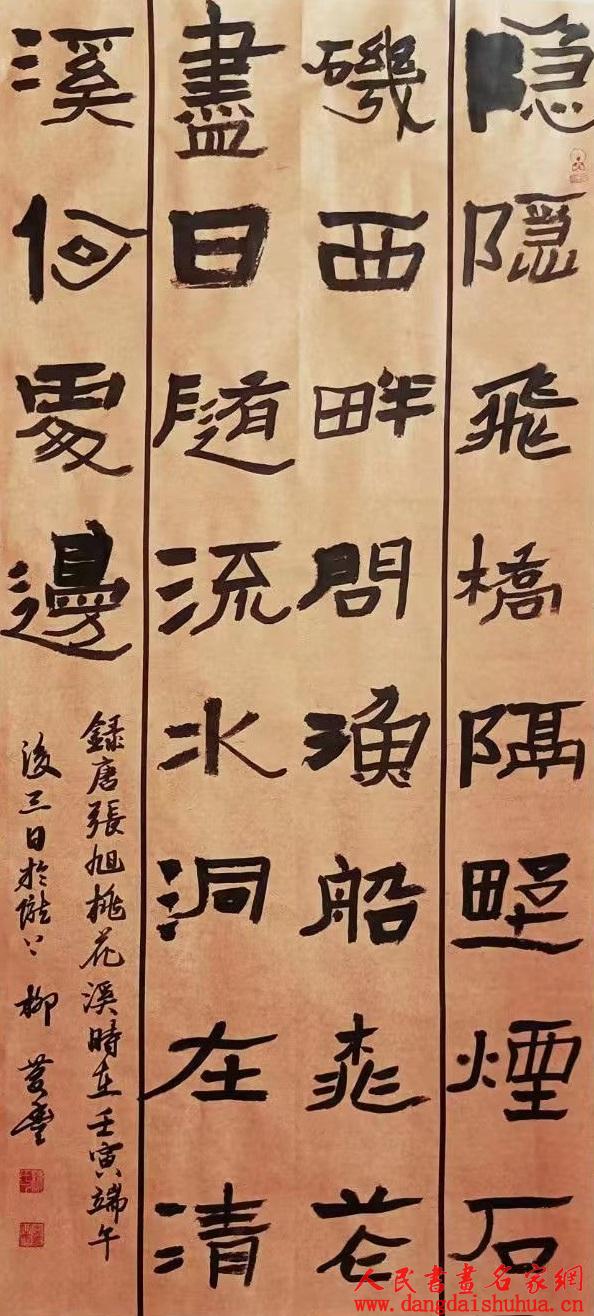 隐隐飛橋隔野煙石
磯西畔問漁船桃花
盡日隨流水洞在清
溪何處邊
録唐張旭桃花溪時在壬寅端午
後三日於隴上柳
人民書畫名家網
www.dangdaishuhua.com